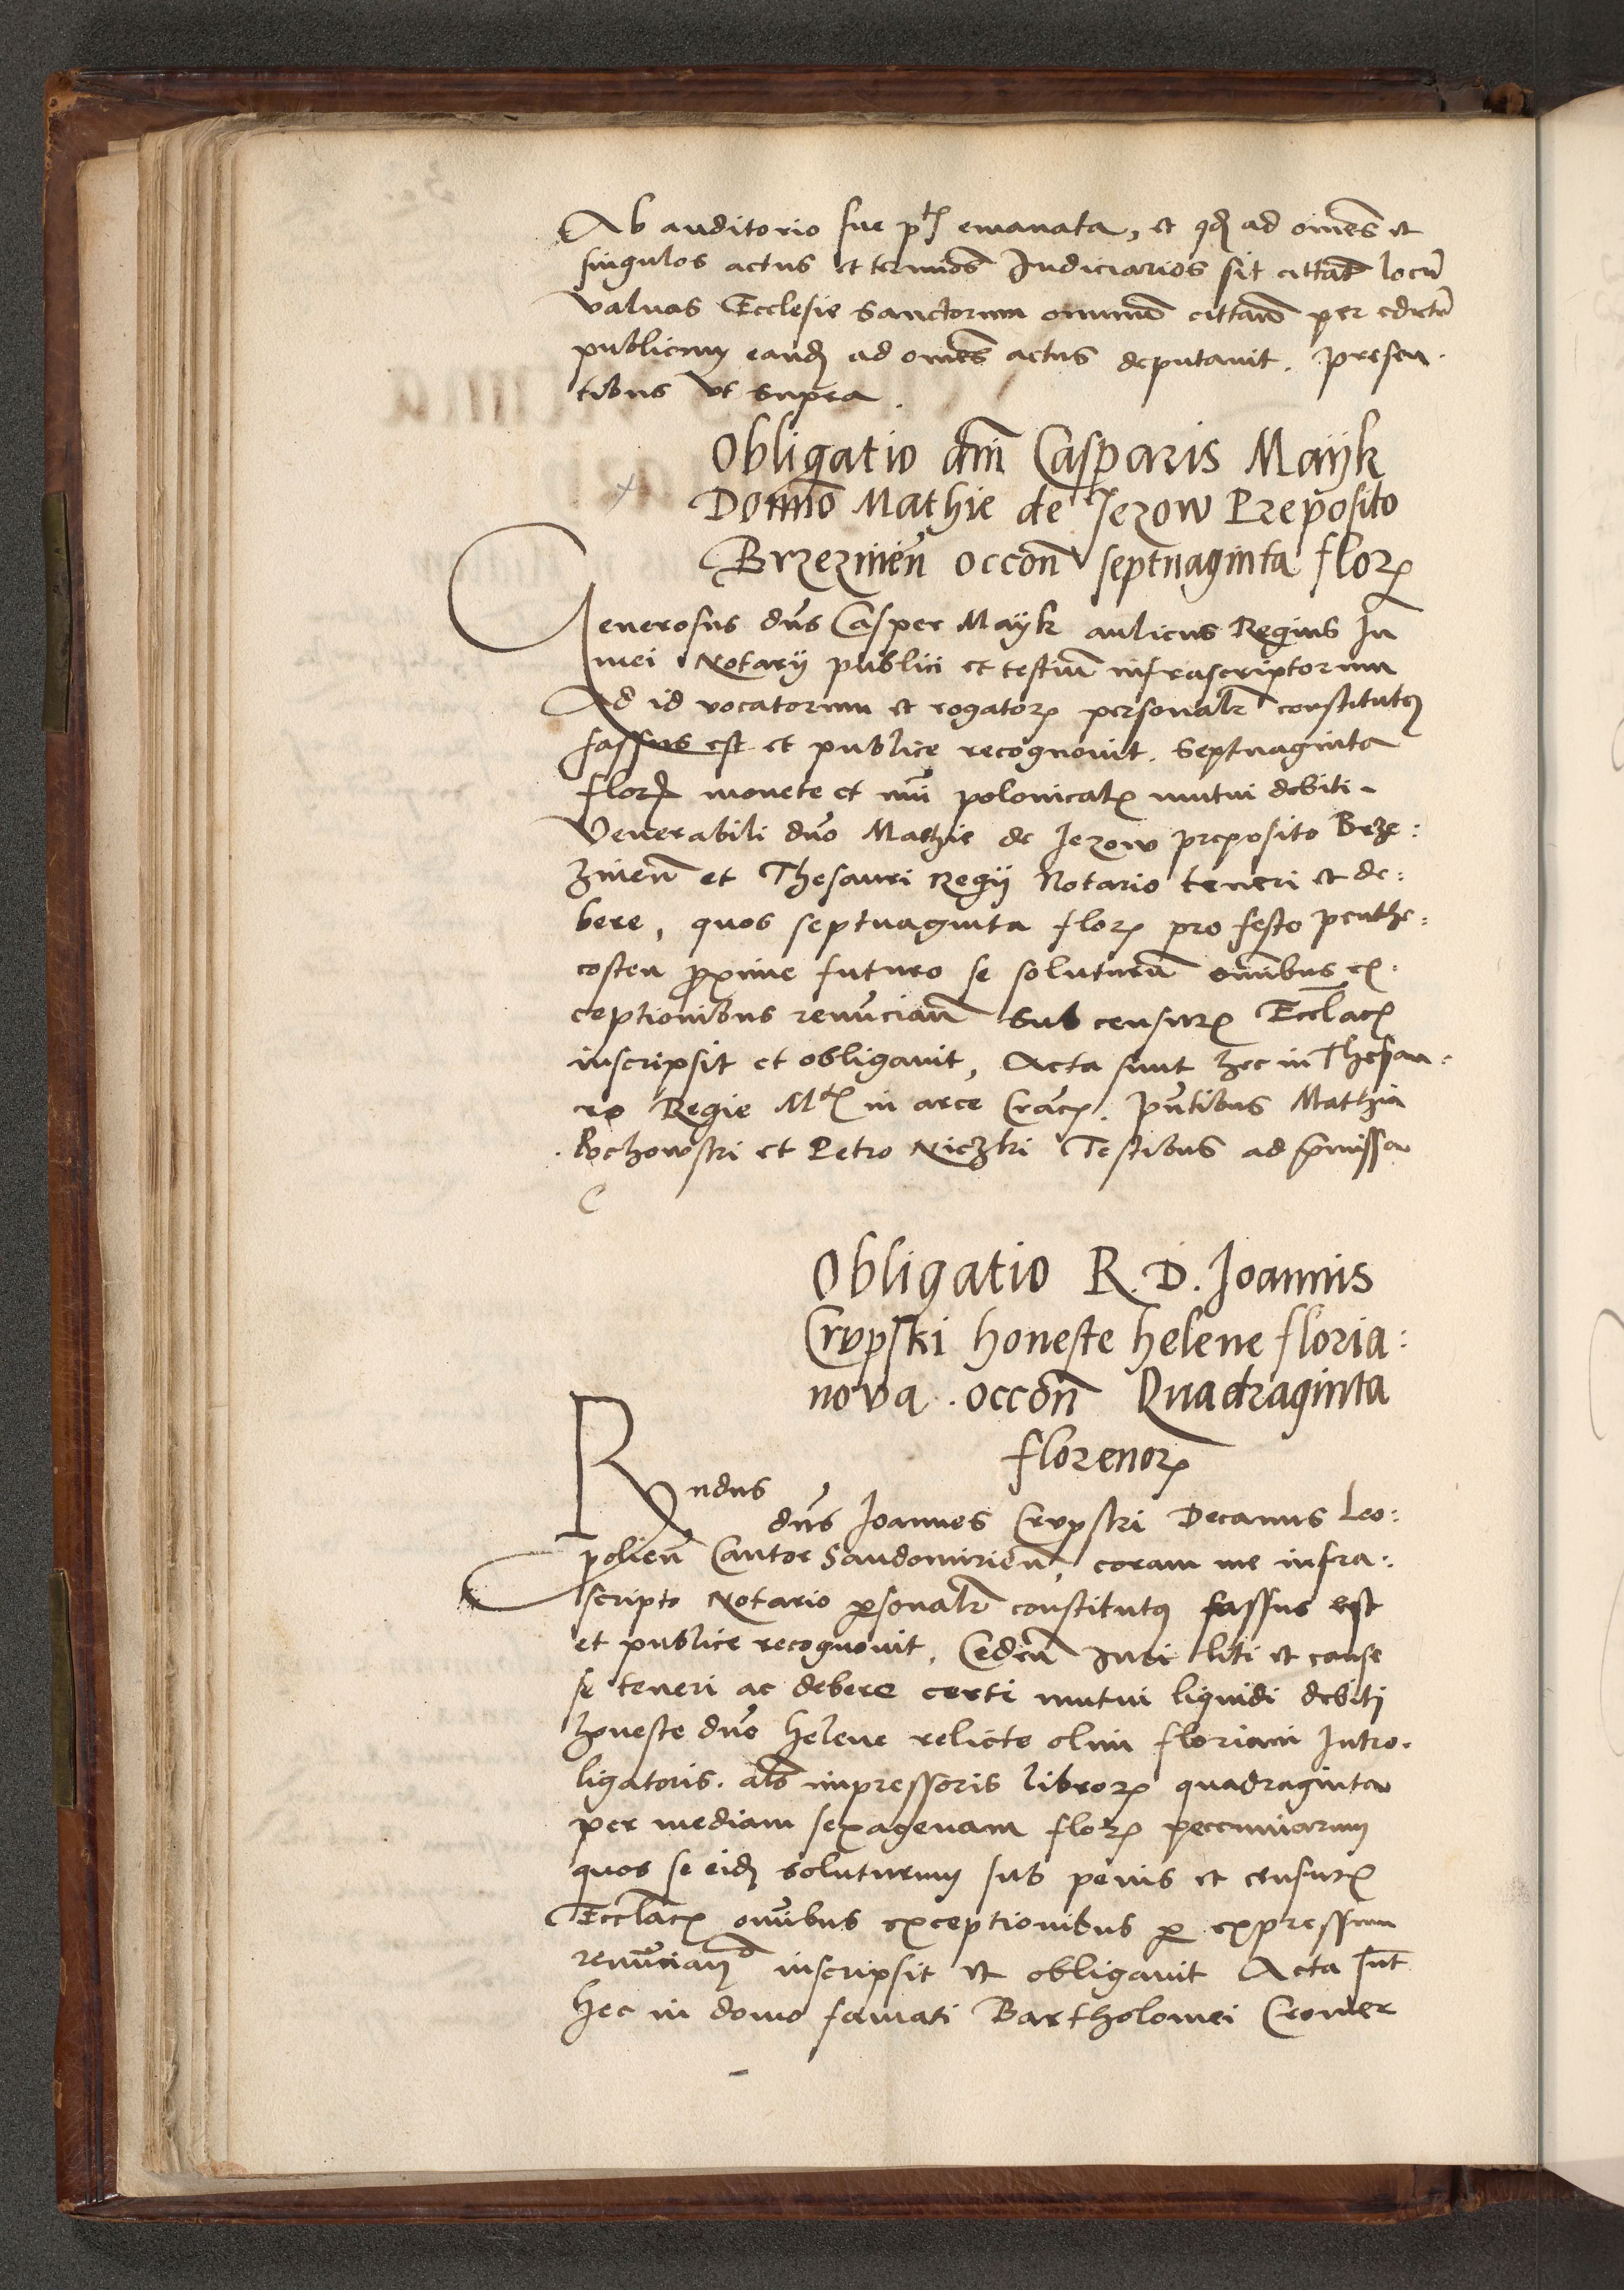 Ab auditorio sue p̄tis emanata, et qđ ad om̄es et
singulos actus et termīos Iudiciarios sit cittat̄ locū
valuas Ecclesie Sanctorum omniū cittaṅ per edictū
publicum eand ad om̄es actus deputavit. Presen-
tibus ut supra.
Obligatio dn̄i Casparis Maÿk
Domīo Mathie de Jezow Preposito
Brzezineṅ occoṅ septuaginta floꝝ
Generosus dn̄s Casper Maÿk aulicus Regius In
mei Notarÿ publici et testiū infrascriptorum
Ad id vocatorum et rogatoꝝ personalr̄ constitutꝰ
fassus est et publice recognovit. Septuaginta
floꝝ monete et nūi polonicalꝭ mutui debiti
Venerabili dn̄o Mathie de Jezow preposito Brze:
zineṅ et Thesauri Regÿ Notario teneri et de:
bere, quos septuaginta floꝝ pro festo penthe:
costen proxime futuro se soluturū omībus ex:
ceptionibus renūciaṅ sub censurꝭ Eccl̄acꝭ
inscripsit et obligavit, Acta sunt hec in Thesau:
ro Regie Mtꝭ in arce Cracꝭ. Pn̄tibus Mathia
Rochowski et Petro Niczki Testibus ad p̄missa
C
Obligatio R. D. Joannis
Crupski honeste helene floria:
nova. occoṅ Quadraginta
florenoꝝ
Rndus
dn̄s Joannes Crupski Decanus Leo:
polieṅ Cantor Sandomirieṅ, coram me infra:
scripto Notario ꝑsonalr̄ constitutꝰ fassus est
et publice recognovit, Cedeṅ Iuri liti et cause
se teneri ac debere certi mutui liquidi debiti
honeste dn̄e helene relicte olim floriani Intro:
ligatoris. al̄s impressoris libroꝝ quadraginta
per mediam sexagenam floꝝ pecuniarum
quos se eid soluturum sub penis et censurꝭ
Eccl̄acꝭ om̄ibus exceptionibus ꝑ expressum
renūcian° inscripsit et obligavit Acta sūt
hec in domo famati Bartholomei Cromer